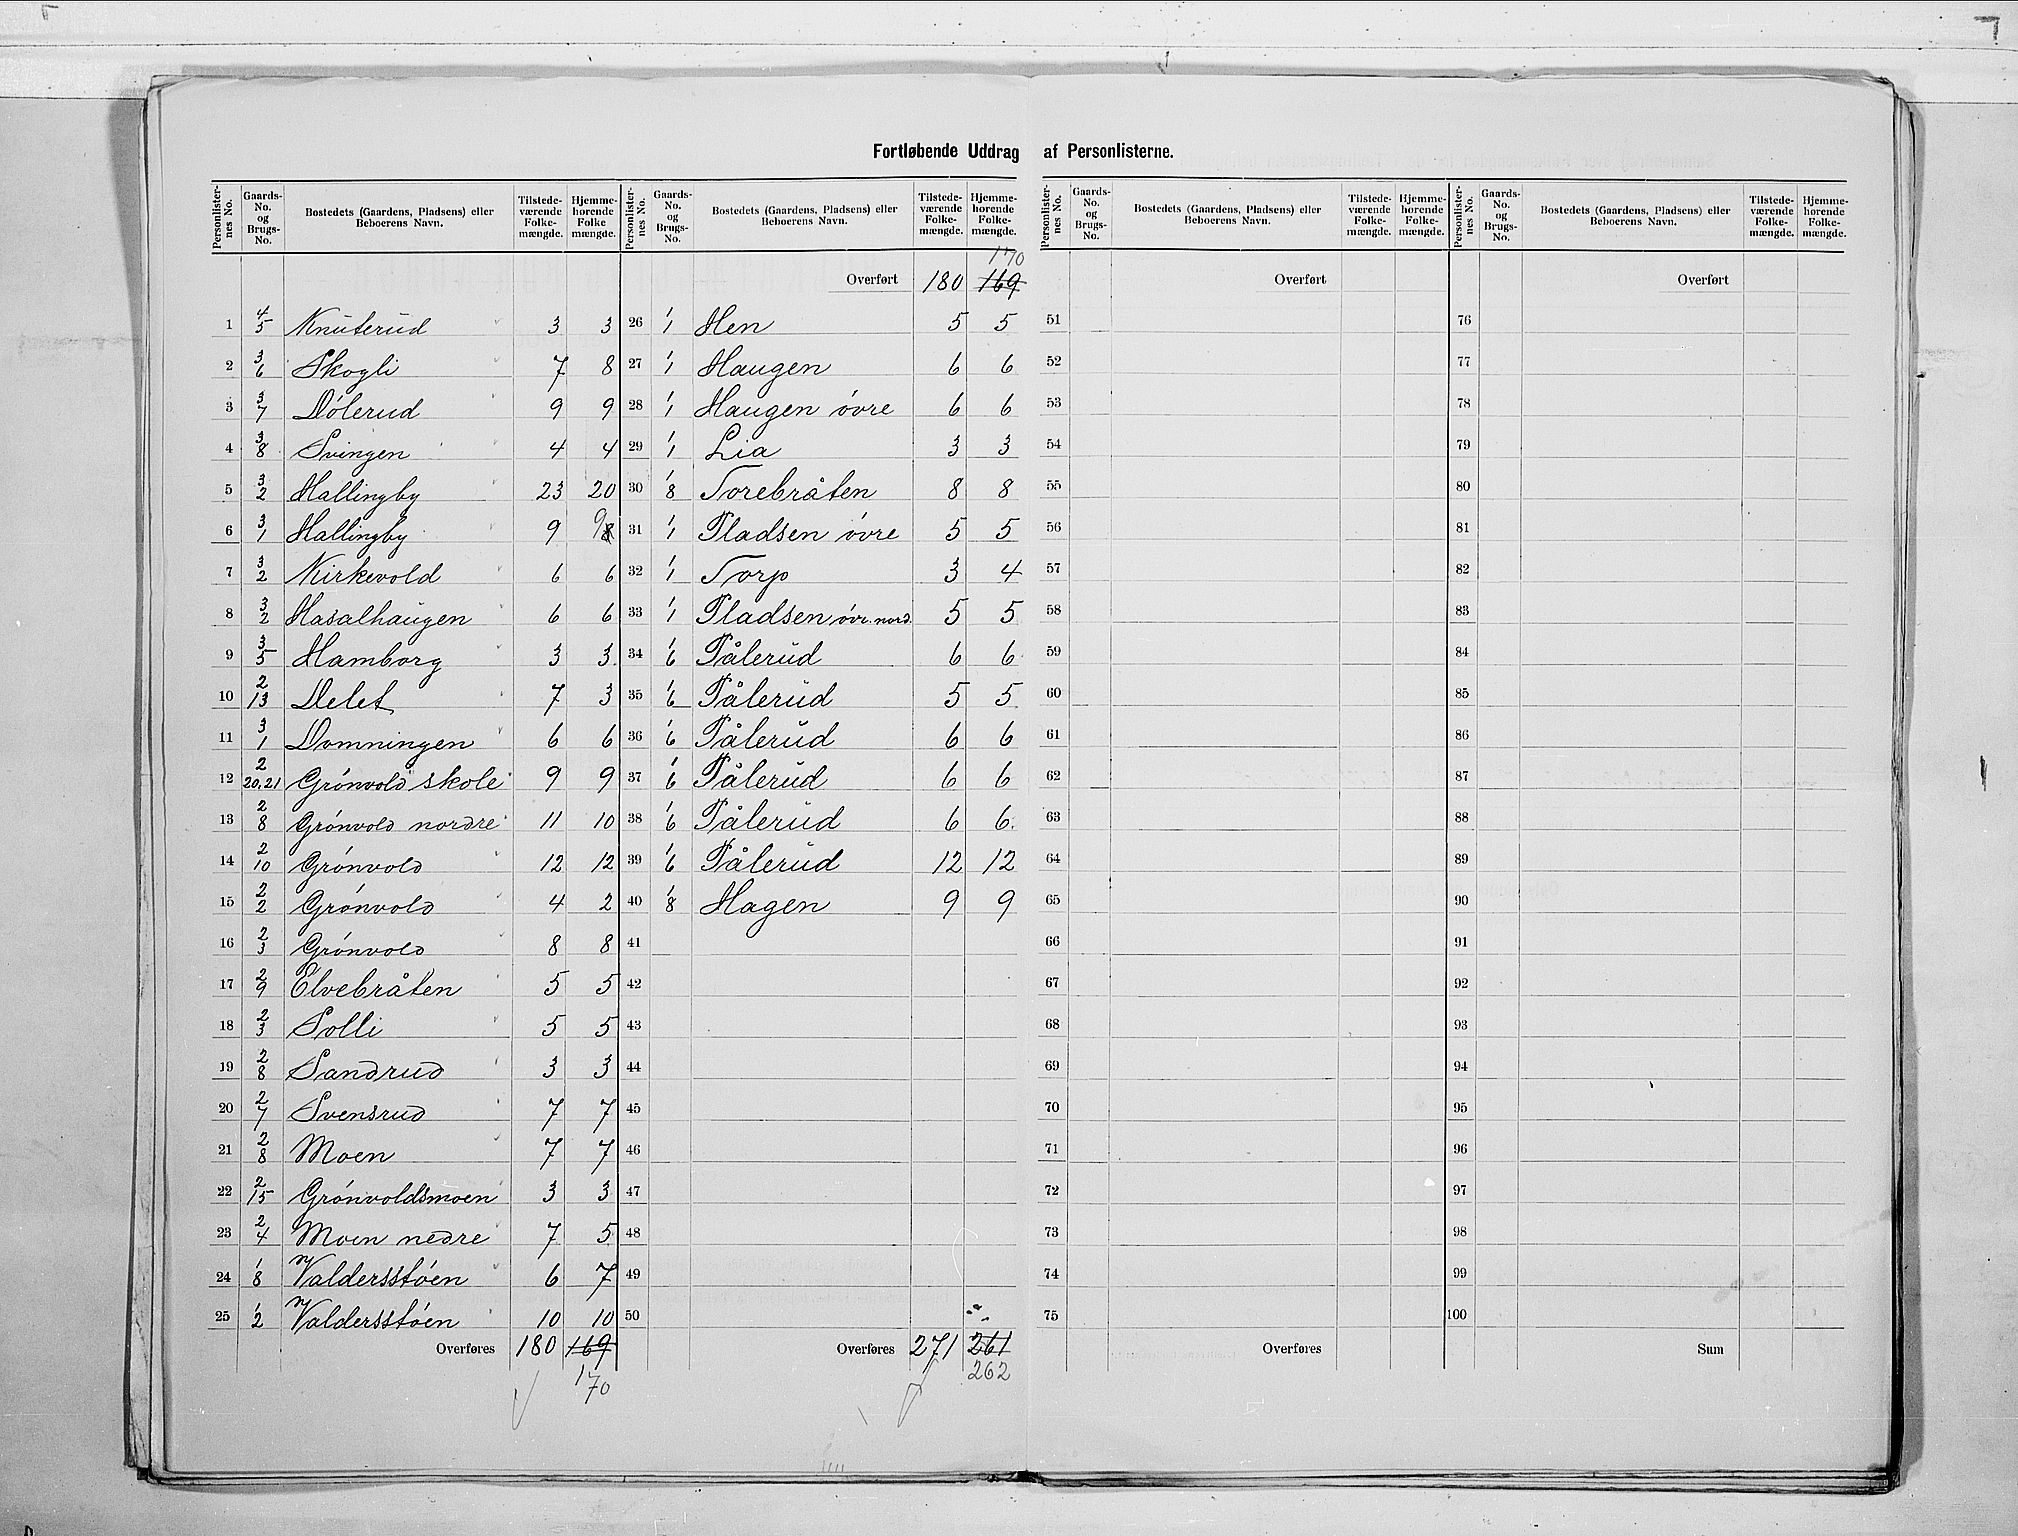 Fortløbende Uddrag af Personlisterne.
Personlister-nes No. | Gaards-No. og Brugs-No. | Bostedets (Gaardens, Pladsens) eller Beboerens Navn. | Tilstede-værende Folke-mængde. | Hjemme-hørende Folke mængde.
1 4/5 Knuterud 3 3
2 3/6 Skogli 7 8
3 3/7 Dølerud 9 9
4 3/8 Svingen 4 4
5 3/2 Hallingby 23 20
6 3/1 Hallingby 9 9 8
7 3/2 Kirkevold 6 6
8 3/2 Hasalhaugen 6 6
9 3/5 Hamborg 3 3
10 2/13 Delet 7 3
11 3/1 Domningen 6 6
12 2/20,21 Grónvold skole 9 9
13 2/8 Grónvold nordre 11 10
14 2/10 Grónvold 12 12
15 2/2 Grónvold 4 2
16 2/3 Grónvold 8 8
17 2/9 Elvebråten 5 5
18 2/3 Solli 5 5
19 2/8 Sandrud 3 3
20 2/7 Svensrud 7 7
21 2/8 Moen 7 7
22 2/15 Grónvoldsmoen 3 3
23 2/4 Moen nedre 7 5
24 1/8 Valdersstóen 6 7
25 1/2 Valdersstóen 10 10
Overføres 180 169
170
Personlister-nes No. | Gaards-No. og Brugs-No. | Bostedets (Gaardens, Pladsens) eller Beboerens Navn. | Tilstede-værende Folke-mængde. | Hjemme-hørende Folke-mængde.
170
Overført 180 169
26 1/1 Hen 5 5
27 1/1 Haugen 6 6
28 1/1 Haugen óvre 6 6
29 1/1 Lia 3 3
30 1/8 Torebråten 8 8
31 1/1 Pladsen óvre 5 5
32 1/1 Torp 3 4
33 1/1 Pladsen óvr. nord. 5 5
34 1/6 Pålerud 6 6
35 1/6 Pålerud 5 5
36 1/6 Pålerud 6 6
37 1/6 Pålerud 6 6
38 1/6 Pålerud 6 6
39 1/6 Pålerud 12 12
40 1/8 Hagen 9 9
41
42
43
44
45
46
47
48
49
50
Overføres 271 261
262
Personlister-nes No. | Gaards-No. og Brugs-No. | Bostedets (Gaardens, Pladsens) eller Beboerens Navn. | Tilstede-værende Folke-mængde. | Hjemme-hørende Folke-mængde.
Overført
51
52
53
54
55
56
57
58
59
60
61
62
63
64
65
66
67
68
69
70
71
72
73
74
75
Overføres
Personlister-nes No. | Gaards-No. og Brugs-No. | Bostedets (Gaardens, Pladsens) eller Beboerens Navn. | Tilstede-værende Folke-mængde. | Hjemme-hørende Folke-mængde.
Overført
76
77
78
79
80
81
82
83
84
85
86
87
88
89
90
91
92
93
94
95
96
97
98
99
100
Sum